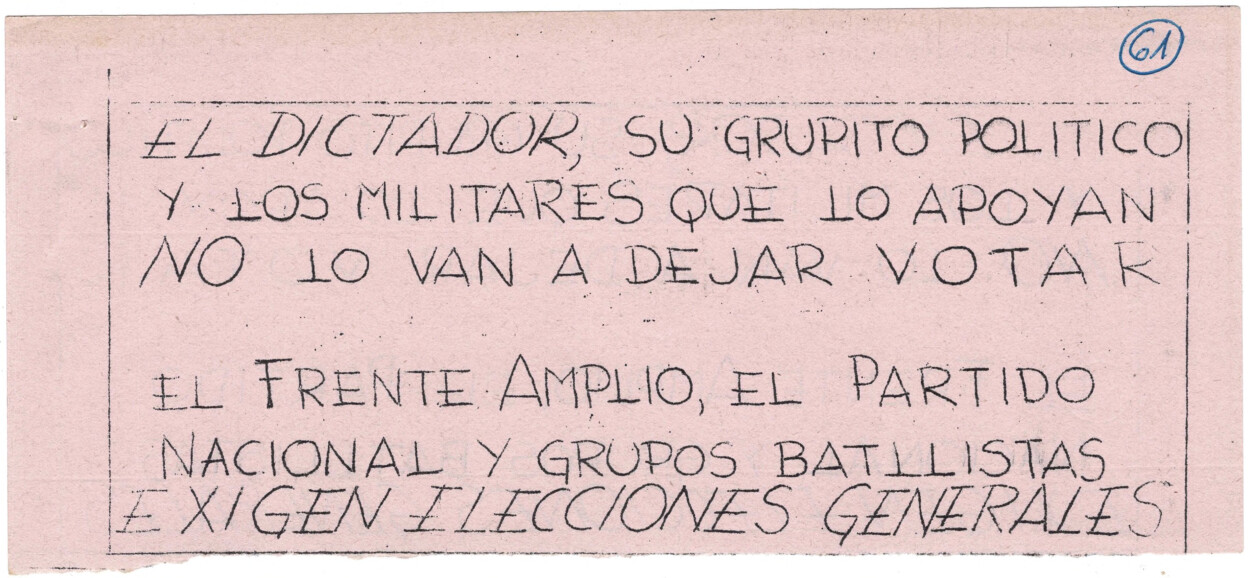 61
EL DICTADOR, SU GRUPITO POLITICO
Y LOS MILITARES QUE LO APOYAN
NO LO VAN A DEJAR VOTAR
EL FRENTE AMPLIO, EL PARTIDO
NACIONAL Y GRUPOS BATLLISTAS
EXIGEN ELECCIONES GENERALES